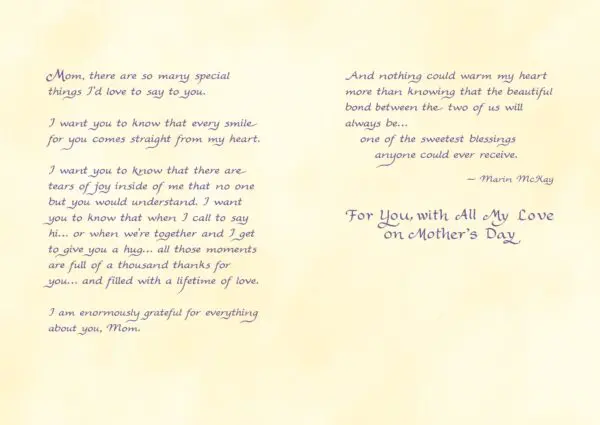 Mom, there are so many special
things I'd love to say to you.
I want you to know that every smile
for you comes straight from my heart.
I want you to know that there are
tears of joy inside of me that no one
but you would understand. I want
you to know that when I call to say
hi... or when we're together and I get
to give you a hug... all those moments
are full of a thousand thanks for
you... and filled with a lifetime of love.
I am enormously grateful for everything
about you, Mom.
And nothing could warm my heart
more than knowing that the beautiful
bond between the two of us will
always be...
one of the sweetest blessings
anyone could ever receive.
— Marin McKay
For You, with All My Love
on Mother's Day